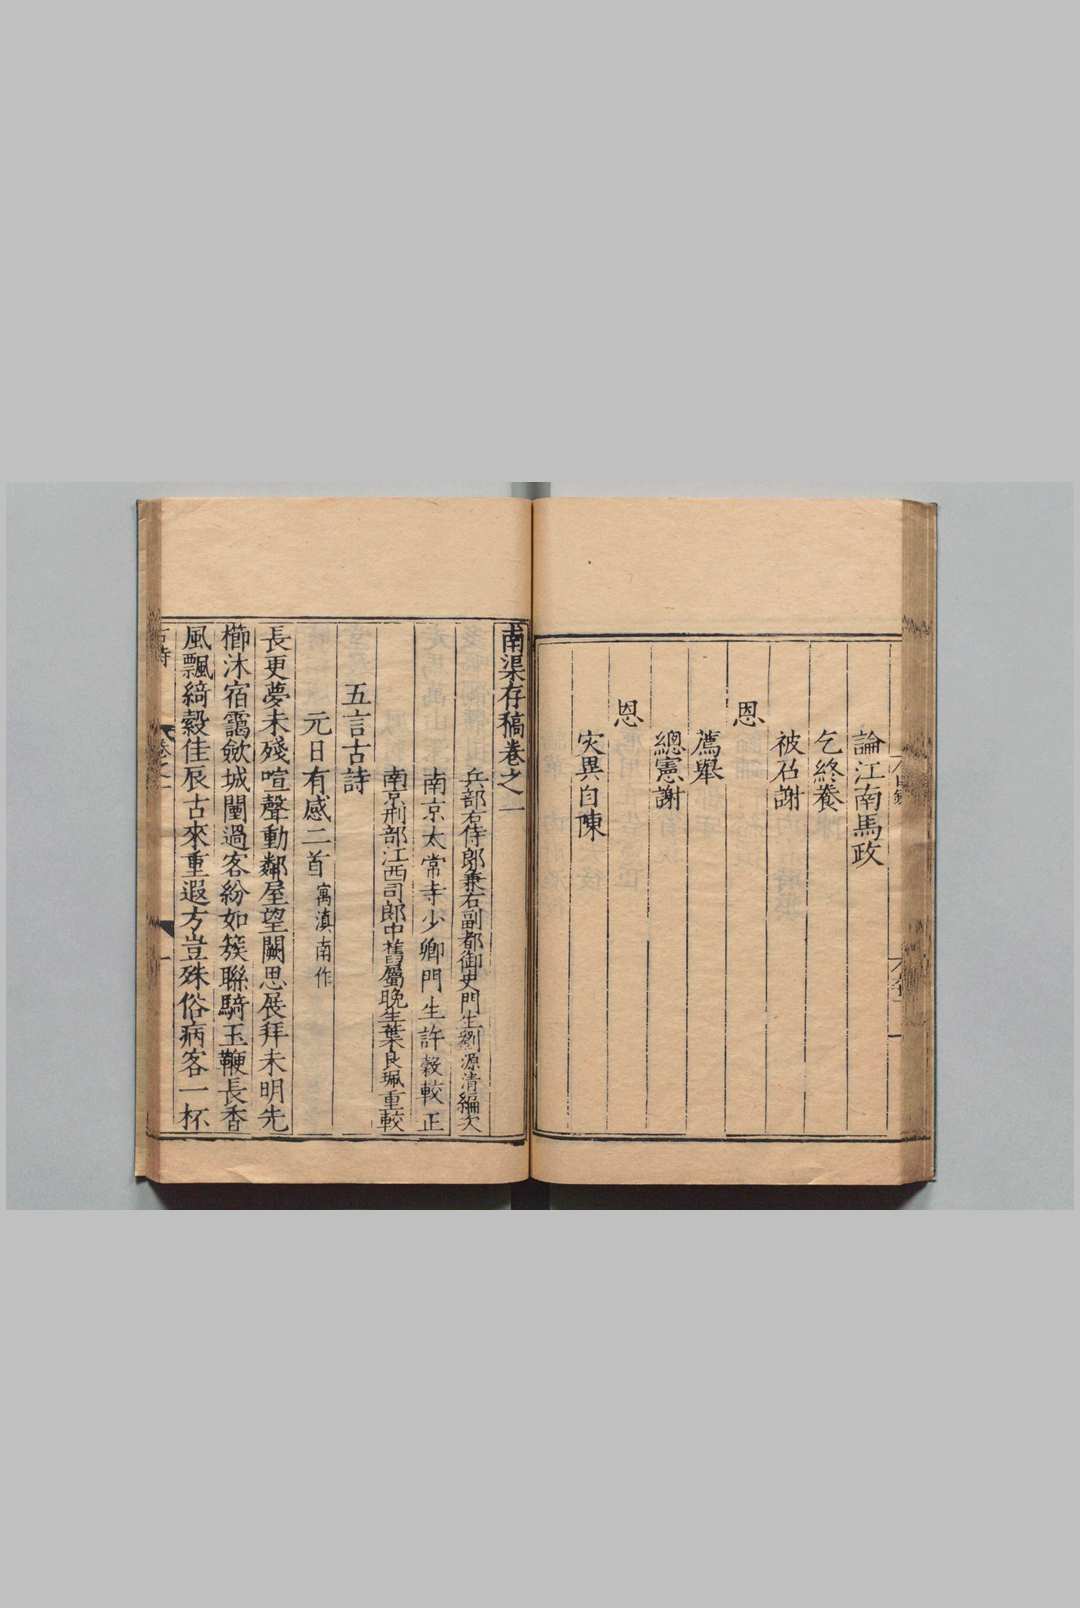 論江南馬政
乞終養
被召謝
恩
薦舉
總憲謝
恩
災異自陳
南渠存稿卷之一
兵部右侍郎兼右副都御史門生劉源清編次
南京太常寺少卿門生許穀較正
南京刑部江西司郎中舊屬晚生葉良珮重較
五言古詩
元日有感二首 寓滇南作
長更夢未殘喧聲動鄰屋望闕思展拜未明先
櫛沐宿靄歛城闉過客紛如簇聯騎玉鞭長香
風飄綺縠佳辰古來重遐方豈殊俗病客一杯